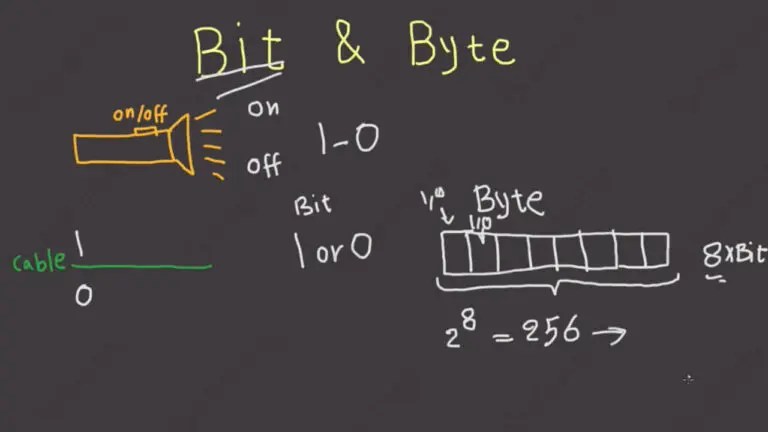 Bit & Byte
on/off
on
off
1-0
Bit
1 or 0
cable
1
0
Byte
1/0
1/0
8xBit
2^8 = 256 →